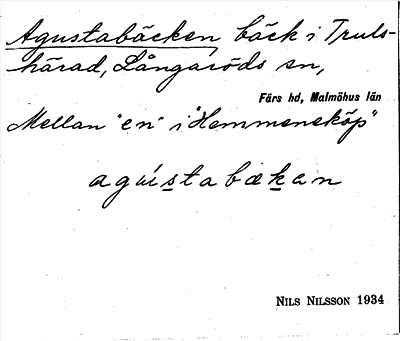 Agustabäcken, bäck i Truls-
härad, Långaröds sn,
Färs hd, Malmöhus län
Mellan "en" i "Hemmeneköp"
agústabækan
NILS NILSSON 1934